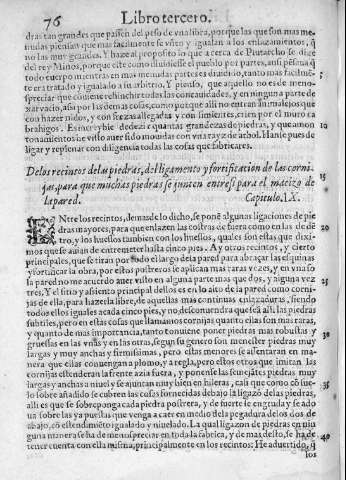 76 Libro tercero.
dras tan grandes que passen del peso de vna libra, porque las que son mas me-
nudas piensan que mas facilmente se vnen y igualan a los enlosamentos, q̃
no las muy grandes. Y haze al proposito lo que a cerca de Plutarcho se dize
del rey Minos, porque este como diuidiesse el pueblo por artes, assi pensaua q̃
todo cuerpo mientras en mas menudas partes es diuidido, tanto mas facilmẽ-
te era tratado y igualado a su arbitrio. Y pienso, que aquello no es de menos-
preciar que conuiene enhinchir todas las concauidades, y en ninguna parte de
xar vacio, assi por las demas cosas, como porque alli no entran animalejos que
con hazer nidos, y con
cabrahigos.
10
tonamientos
ligar y reposar con diligencia todas las cosas que fabricares.
De los recintos de las piedras, del ligamento y fortificacion de las corni-
jas, para que muchas piedras se junten entresi para el macizo de 15
la pared. Capitulo. IX.
ENtre los recintos, demas de lo dicho, se ponẽ algunas ligaciones de pie
dras mayores, para que enlazen las costras de fuera con las de dẽ 20
tro, y los huessos tambien con los huessos, qual es son estas que diximos
que se auian de entremeter hasta cinco pies. Ay otros recintos, y cierto
principales, que se tiran por todo el largo de la pared para abraçar las esquinas
y fortificar la obra, por estos postreros se aplican mas raras vezes, y en vna so
la pared no me acuerdo auer visto en alguna parte mas que dos, y alguna vez 25
tres. Y el sitio y assiento principal dellos es en lo alto de la pared como corni-
jas de ella, para hazerla libre, de aquellas mas continuas enlazaduras, siendo
todo ellos iguales a cada cinco pies, y no desconuendra que sea assi, las piedras
subtiles, pero en estas cosas que llamamos cornijas quanto ellas son mas raras,
y quanto de mas importancia, tanto conuiene poner piedras mas robustas y 30
gruessas en las vnas y en las otras, segun su genero son menester piedras muy
largas y muy anchas y firmissimas, pero estas menores se assentaran en ma-
nera que ellas conuengan a plomo, y a regla, pero estos otros que imitan las
cornijas estenderan la frente azia fuera, y ponense las semejãtes piedras muy
largas y anchas a niuel y se ajuntan muy bien en hileras, casi que como cõ sue- 35
lo sobre añadido se cubren las cosas fornecidas debajo la ligaçõ de las piedras,
alli es que se sobreponga cada piedra postrera, y de suerte se engruda y se ado
ua sobre las ya puestas que venga a caer en medio de la pegadura de los dos de
abajo, cõ estendimiẽto igualado y niuelado. La qual ligazon de piedras en nin
guna manera se ha de menospreciar en toda la fabrica, y de mas desto, se ha de
tener cuenta con ella misma, principalmente en los recintos. He aduertido, q̃ 40
los